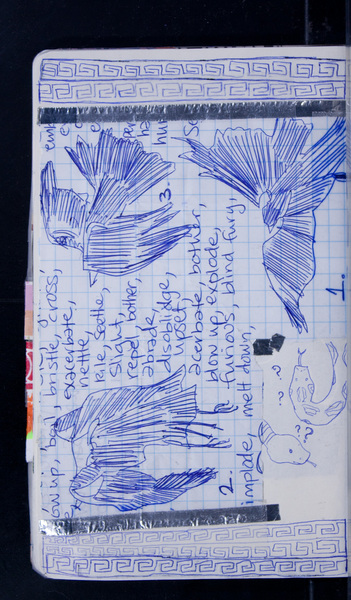 blow up, bristle, cross,
exacerbate,
nettle
rile, Soothe,
slight,
repel, bother,
abrade,
disoblidge,
upset,
acerbate, bother,
blow up, explode,
furious, blind fury,
implode, melt down,
1.
2.
3.